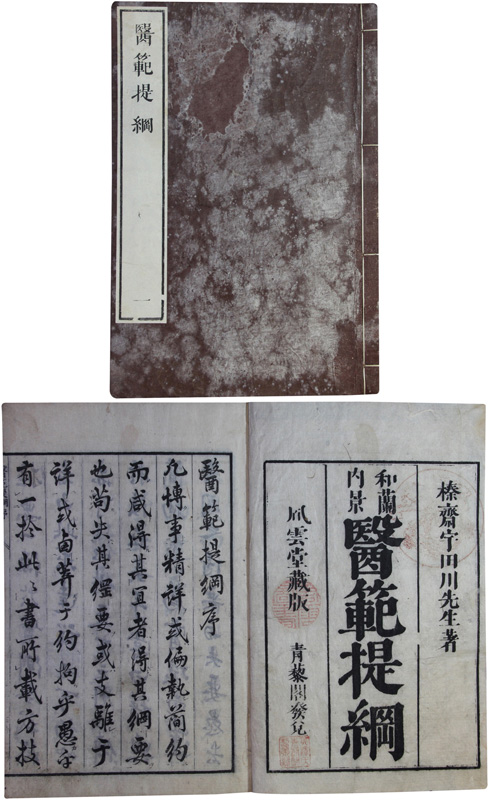 醫範提綱
一
榛齋宇田川先生著
和蘭
內景
醫範提綱
風雲堂藏版
青藜閣發兌
醫範提綱序
凡博事精詳或偏執簡約
而咸得其宜者得其綱要
也苟失其綱要或支離于
詳或鹵莽于約拘乎愚乎
有一於此、書所載方技